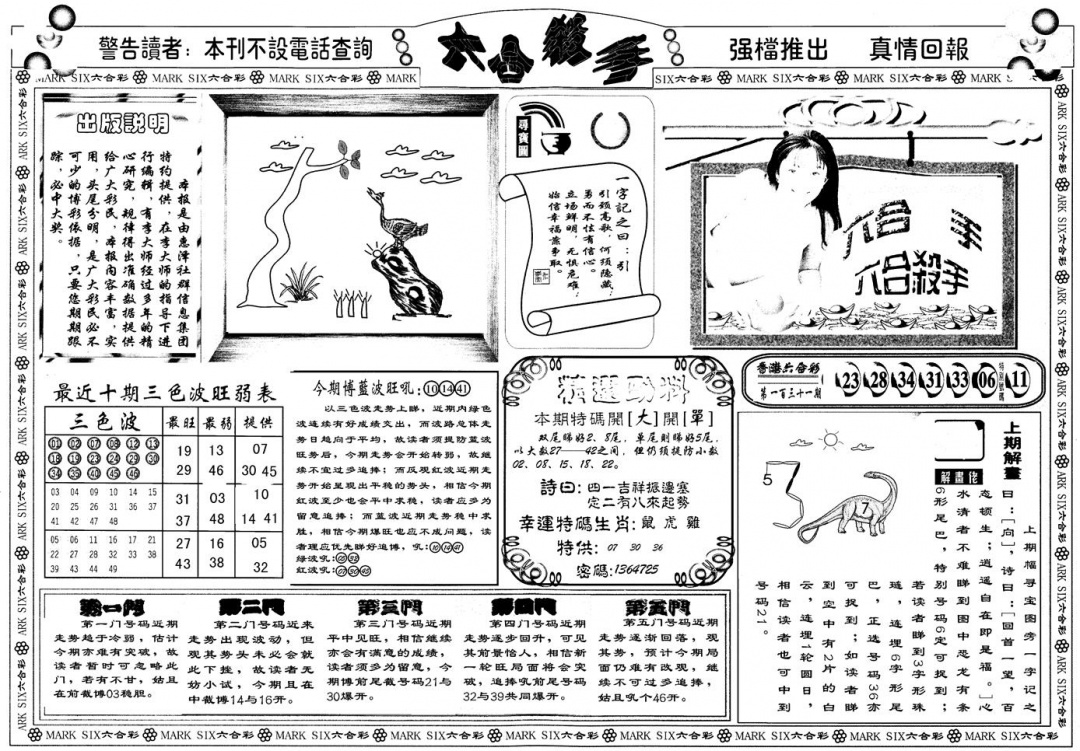 警告讀者：本刊不設電話查詢
六合殺手
强檔推出 真情回報
MARK SIX六合彩
出版説明
本报是由惠泽社群信息集团
特约提供，在李大师的指导下进
行编辑，有李大师经过多年的精
心研究，规律得出准确数据提供
给广大彩民，本报内容丰富，实
用，头尾分明，是广大彩民必不
可少的博彩依据，只要您期期跟
踪，必中大奖。
一字記之曰：引
引頸高歌，何須隐藏；
勇而不怯有信心。
立場鲜明，无惧危难；
始信幸福靠争取。
六合 手
六合殺手
香港六合彩
第一百三十一期
23 28 34 31 33 06
特别號碼
11
最近十期三色波旺弱表
三色波 最旺 最弱 提供
01 02 07 08 12 13
18 19 23 24 29 30
34 35 40 45 46
19 13 07
29 46 30 45
03 04 09 10 14 15
20 25 26 31 36 37
41 42 47 48
31 03 10
37 48 14 41
05 06 11 16 17 21
22 27 28 32 33 38
39 43 44 49
27 16 05
43 38 32
今期博藍波旺吼：10 14 41
以三色波走势上睇，近期内绿色
波连续有好成绩交出，而波路总体走
势日趋向于平均，故读者须提防蓝波
旺势后，今期走势会开始转弱，故继
续不宜过多追捧；而反观红波近期走
势开始呈现出平稳的势头，相信今期
红波至少也会平中求稳，读者应多为
留意追捧；而蓝波近期走势稳中求
胜，相信今期爆旺也应不成问题，读
者理应优先睇好追博，吼：10 14 41
绿波吼：05 32
红波吼：07 30 45
精選勁料
本期特碼開[大]開[單]
双尾睇好2、8尾，单尾则睇好5尾，
以大数27——42之间，但仍须提防小数
02、08、15、18、22。
詩曰：四一吉祥振邊塞
定二有八來起勢
幸運特碼生肖：鼠 虎 雞
特供：07 30 36
密碼：1364725
上期解畫
解畫佬
5
7
上期幅寻宝图旁一字记之
曰：[向]，诗曰：[回首一望，百
态顿生；逍遥自在即是福。]心
水清者不难睇到图中恐龙有条
6形尾巴，特别号码6定可捉到；
若读者睇到3字形珠
琏，连埋6字形尾
巴，正选号码36亦
可捉到；如读者睇
到空中有2片的白
云，连埋1轮圆日，
相信读者也可中到
号码21。
第一門
第一门号码近期
走势趋于冷弱，估计
今期亦难有突破，故
读者暂时可忽略此
门，若有不甘，姑且
在前截博03稳胆。
第二門
第二门号码近来
走势出现波动，但
观其势头未必会就
此下挫，故读者无
妨小试，今期且在
中截博14与16开。
第三門
第三门号码近期
平中见旺，相信继续
亦会有满意的成绩，
读者须多为留意，今
期博前尾截号码21与
30爆开。
第四門
第四门号码近期
走势逐步回升，可见
其前景怡人，相信新
一轮旺局面将会突
破，追捧吼前尾号码
32与39共同爆开。
第五門
第五门号码近期
走势逐渐回落，观
其势，预计今期局
面仍难有改观，继
续不可过多追捧，
姑且吼个46开。
MARK SIX六合彩